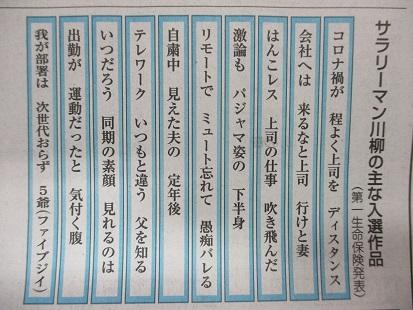 サラリーマン川柳の主な入選作品
(第一生命保険発表)
コロナ禍が 程よく上司を ディスタンス
会社へは 来るなと上司 行けと妻
はんこレス 上司の仕事 吹き飛んだ
激論も パジャマ姿の 下半身
リモートで ミュート忘れて 愚痴バレる
自粛中 見えた夫の 定年後
テレワーク いつもと違う 父を知る
いつだろう 同期の素顔 見れるのは
出勤が 運動だったと 気付く腹
我が部署は 次世代おらず 5爺(ファイブジイ)